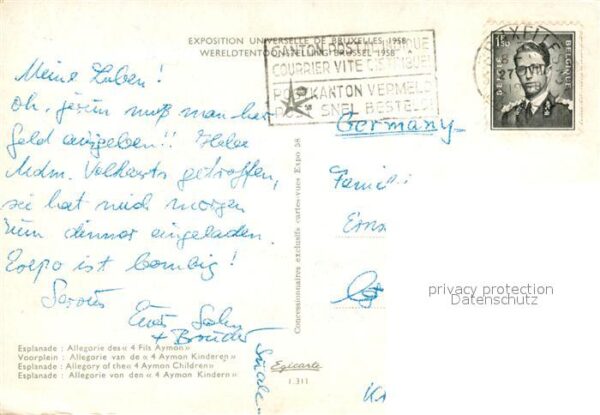 EXPOSITION UNIVERSELLE DE BRUXELLES 1958
WERELDTENTOONSTELLING BRUSSEL 1958
CANTON POSTAL INDIQUE
COURRIER VITE DISTRIBUE!
POSTKANTON VERMELD
POST SNEL BESTELD!
BRUXELLES
1F50
BELGIE
BELGIQUE
Meine Lieben!
oh, muß man hier
Geld ausgeben!! Habe
Mdm. Volkaerts getroffen,
sie hat mich morgen
zum dinner eingeladen.
Expo ist bombig!
Servus
Euer Sohn
+ Bruder
Germany
Concessionnaires exclusifs cartes-vues Expo 58
privacy protection
Datenschutz
Esplanade : Allegorie des « 4 Fils Aymon »
Voorplein : Allegorie van de « 4 Aymon Kinderen »
Esplanade : Allegory of the « 4 Aymon Children »
Esplanade : Allegorie von den « 4 Aymon Kindern »
Egicarte
1.311